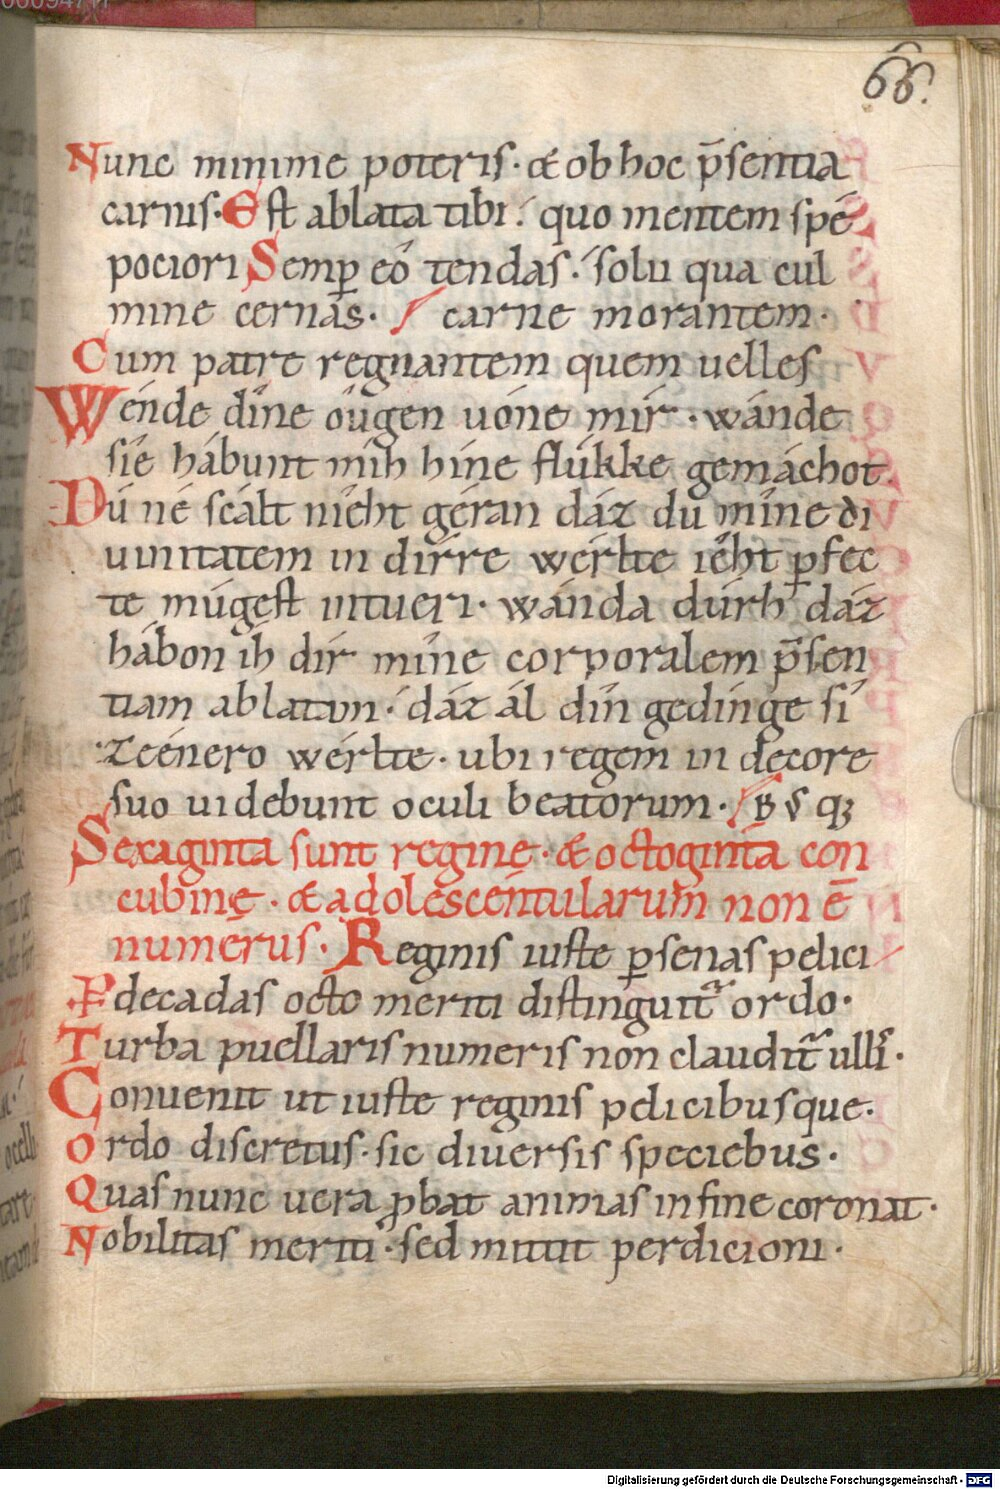 66.
Nunc minime poteris· & ob hoc p̄sentia
carnis· Est ablata tibi· quo mentem spé
pociori Semp̱ eó tendas· solu qua cul
mine cernas· / carne morantem·
Cum patre regnantem quem uelles
Wénde díne óugen uóne mír· wánde
síe hábunt míh híne flúkke gemáchot.
Dú né scált nîeht géran dáz du míne di
uinitatem in dírre wérlte îeht p̱fec
te múgest intueri· wánda dúrh dáz
hábon íh dír míne corporalem p̄sen
tiam ablatam· dáz ál dín gedínge sí
zeénero wérlte· ubi regem in decore
suo uidebunt oculi beatorum· /
Sexaginta sunt reginę· & octoginta con
cubinę· & adolescentularum non ē
numerus· Reginis iuste p̱senas pelici
P decadas octo meriti distinguit᷑ ordo·
Turba puellaris numeris non claudit᷑ ullis·
Conuenit ut iuste reginis pelicibusque·
Ordo discretus· sic diuersis speciebus·
Quas nunc uera ꝓbat animas in fine coronat·
Nobilitas meriti· sed mittit perdicioni·
Digitalisierung gefördert durch die Deutsche Forschungsgemeinschaft - DFG